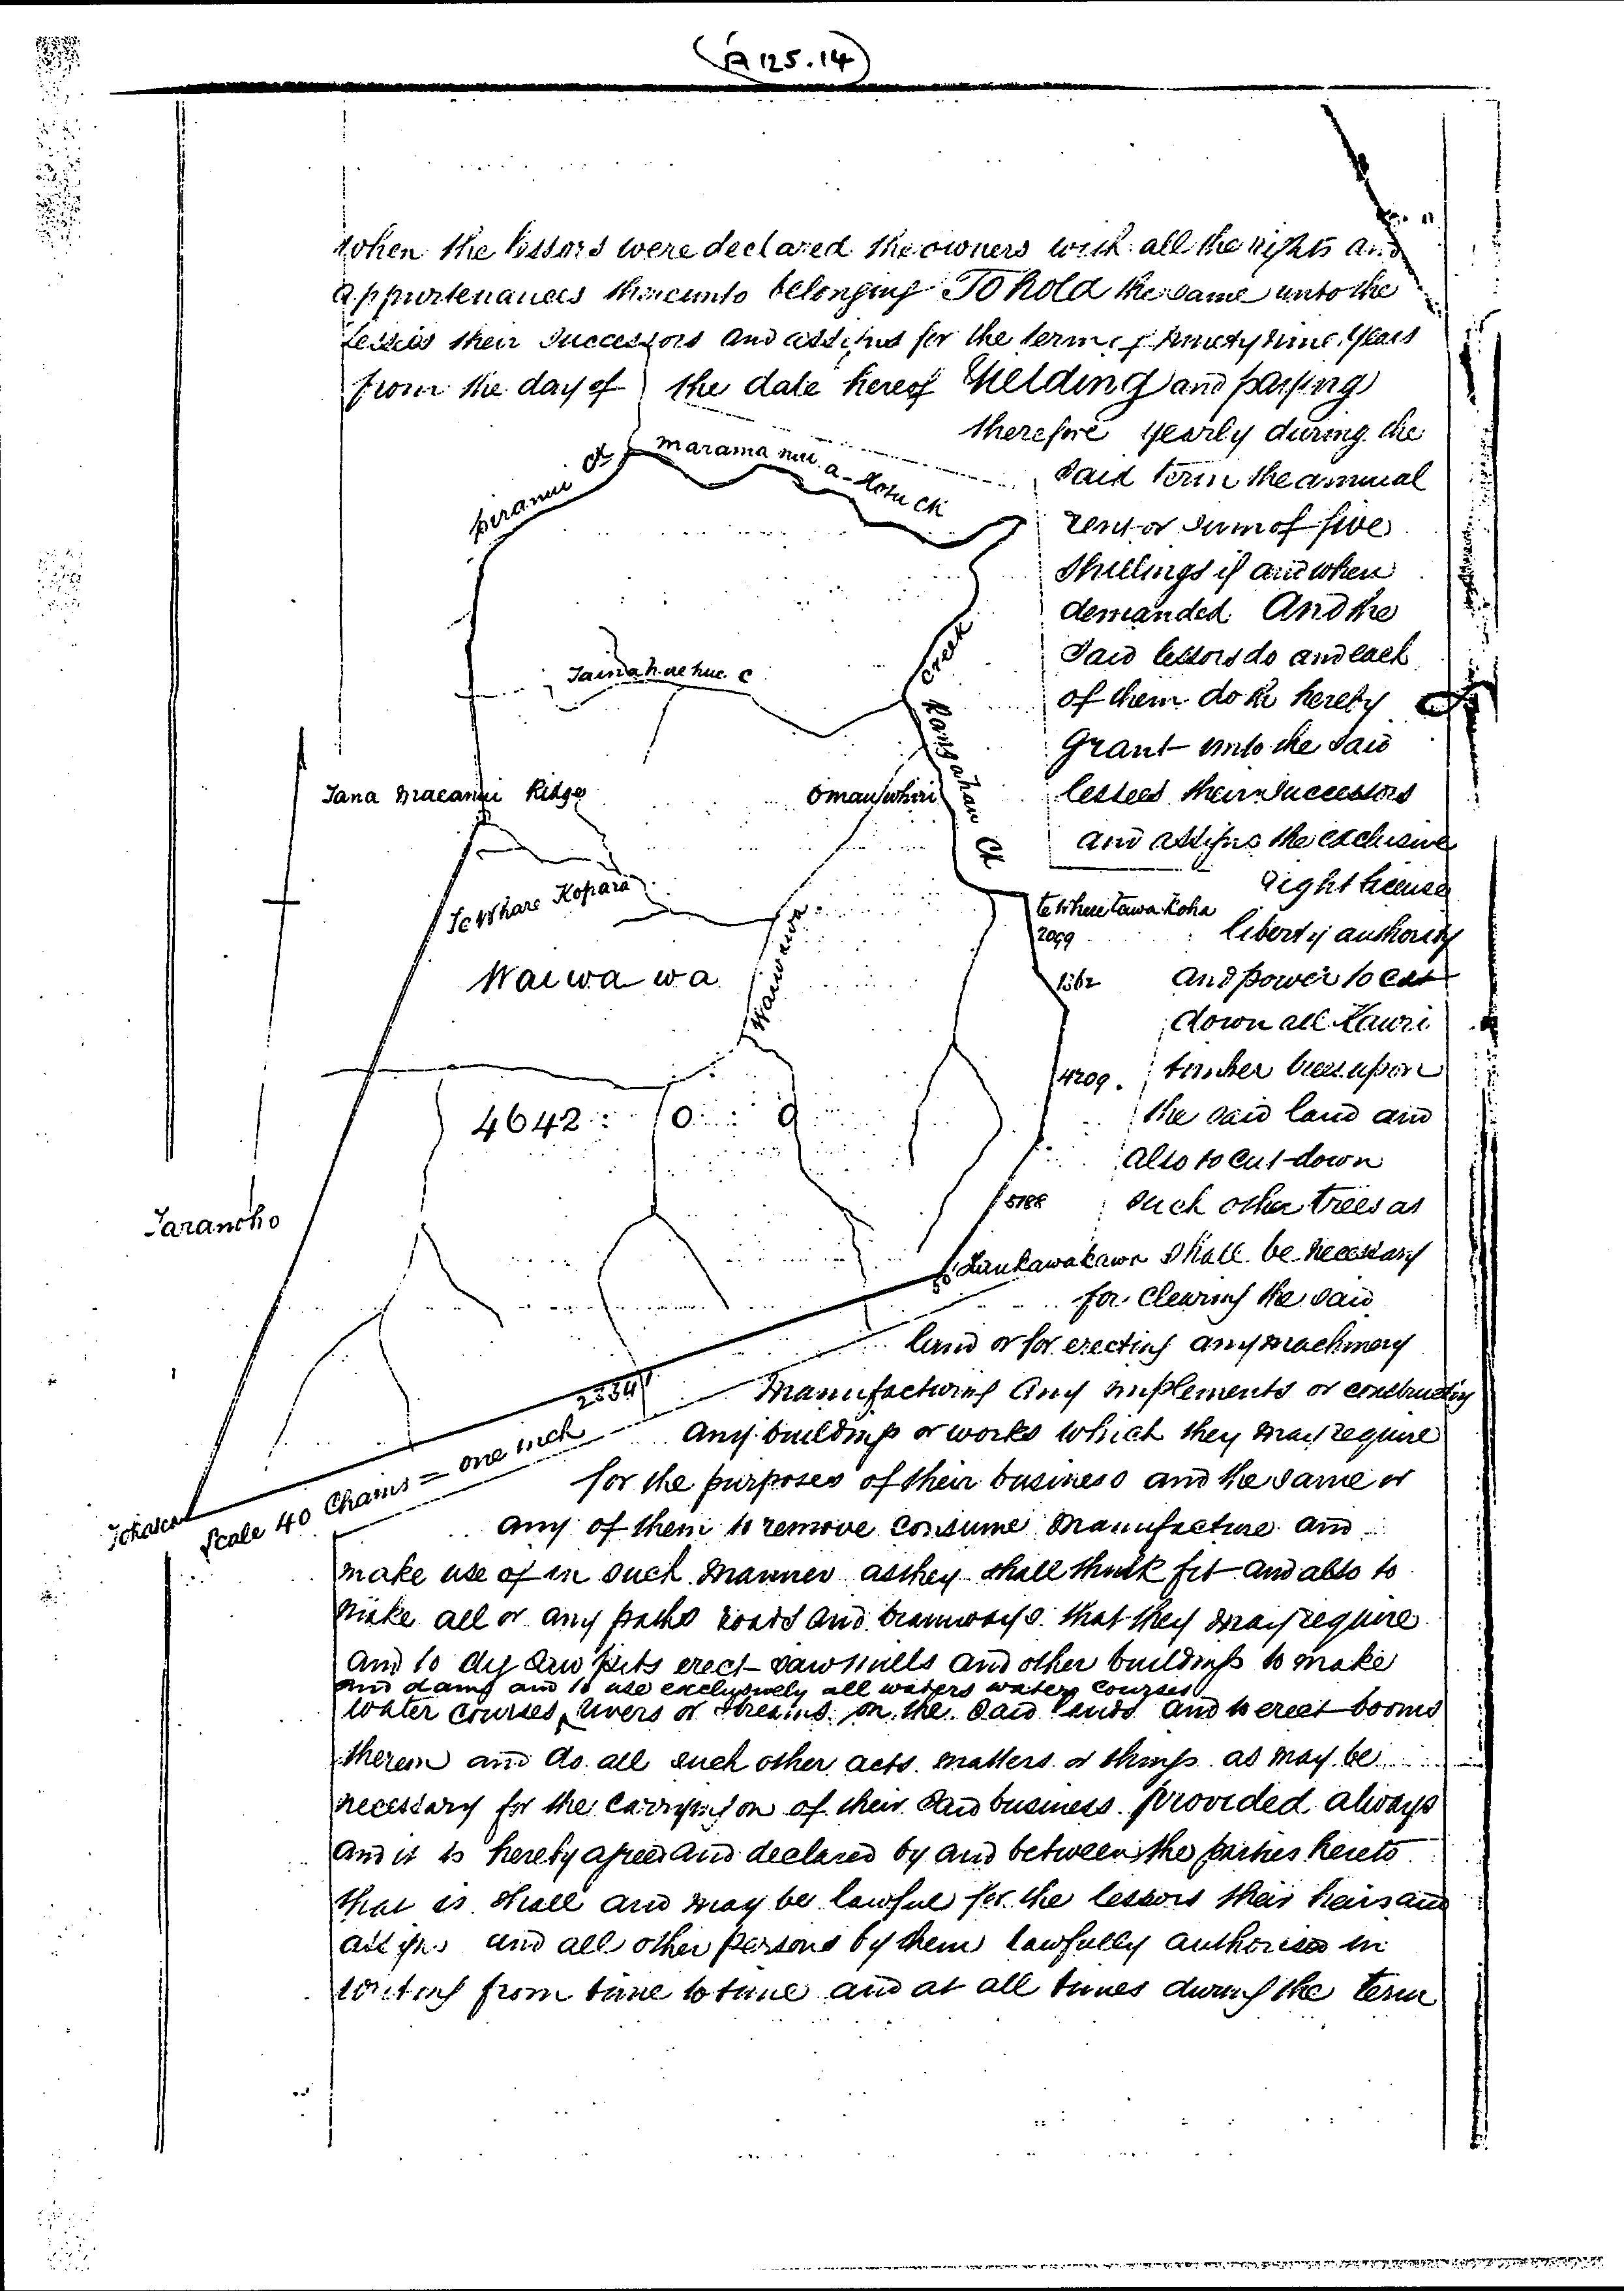 A 125.14
when the lessors were declared the owners with all the rights and
appurtenances thereunto belonging To hold the same unto the
lessees their successors and assigns for the term of ninety nine years
from the day of the date hereof Yielding and paying
therefore yearly during the
said term the annual
rent or sum of five
shillings if and when
demanded And the
said lessors do and each
of them doth hereby
Grant unto the said
lessees their successors
and assigns the exclusive
right license
liberty authority
and power to cut
down all Kauri
timber trees upon
the said land and
also to cut down
such other trees as
shall be necessary
for clearing the said
land or for erecting any machinery
manufacturing any implements or constructing
any buildings or works which they may require
for the purposes of their business and the same or
any of them to remove consume manufacture and
make use of in such manner as they shall think fit and also to
make all or any paths roads and tramways that they may require
and to dig saw pits erect sawmills and other buildings to make
and dams and to use exclusively all waters water courses
water courses rivers or streams on the said lands and to erect booms
therein and do all such other acts matters or things as may be
necessary for the carrying on of their said business provided always
and it is hereby agreed and declared by and between the parties hereto
that is shall and may be lawful for the lessors their heirs and
assigns and all other persons by them lawfully authorised in
writing from time to time and at all times during the term
piranui Ck
marama nui a-hotu Ck
Creek
Rangahau Ck
Omauwhiri
Ridge
Te Whare Kopara
Waiwawa
Waiwawa
4642 : 0 : 0
2099
1362
4209
5188
2334
Scale 40 Chains = one inch